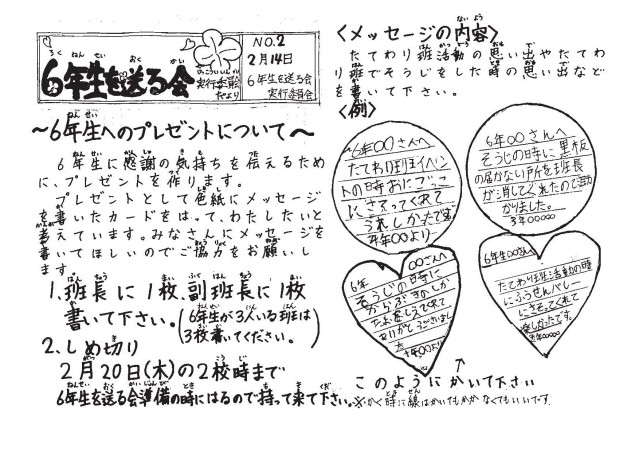 6年生を送る会
実行委員会
だより
NO.2
2月14日
6年生を送る会
実行委員会
~6年生へのプレゼントについて~
6年生に感謝の気持ちを伝えるため
に、プレゼントを作ります。
プレゼントとして色紙にメッセージ
を書いたカードをはって、わたしたいと
考えています。みなさんにメッセージを
書いてほしいのでご協力をお願いし
ます。
1、班長に1枚、副班長に1枚
書いて下さい。(6年生が3人いる班は
3枚書いてください。)
2、しめ切り
2月20日(木)の2校時まで
6年生を送る会準備の時にはるので持って来て下さい。
<メッセージの内容>
たてわり班活動の思い出やたてわ
り班でそうじをした時の思い出など
を書いて下さい。
<例>
6年〇〇さんへ
たてわり班イベン
トの時おにごっこ
にさそってくれて
うれしかったです
4年〇〇より
6年〇〇さんへ
そうじの時に黒板
の届かない所を班長
が消してくれたので助
かりました。
3年〇〇〇〇〇
6年〇〇さんへ
そうじの時に
からぶきのしか
たを教えてくれて
ありがとうございまし
た。
年〇〇より
6年生〇〇さんへ
たてわり班活動の時
にふうせんバレー
にさそってくれて
楽しかったです。
年〇〇〇より
↑
このようにかいて下さい
※かく時に線はかいてもかかなくてもいいです。